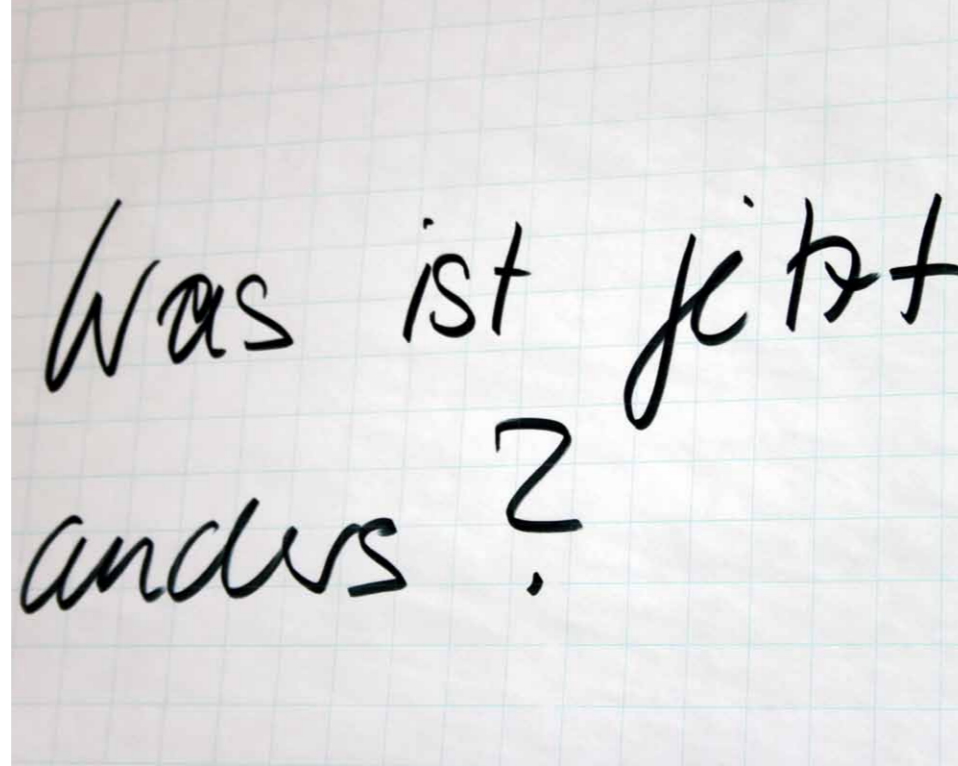 Was ist jetzt
anders?